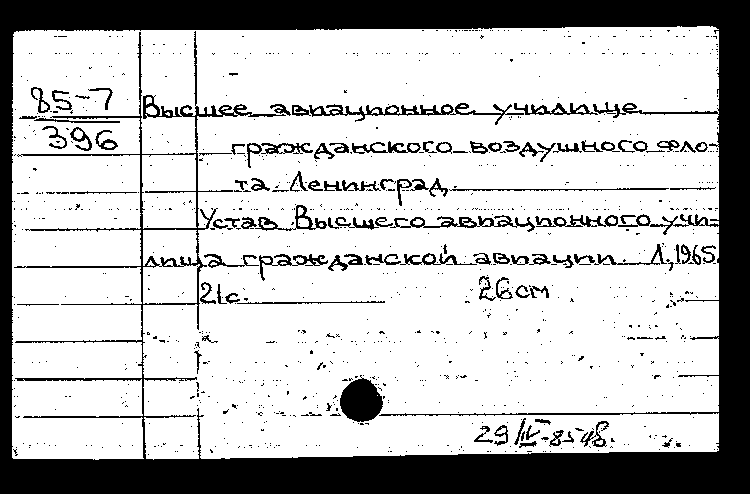 85-7
396
Высшее авиационное училище
гражданского воздушного фло-
та. Ленинград.
Устав Высшего авиационного учи-
лища гражданской авиации. Л., 1965.
21с. 26 см
29/IV-85